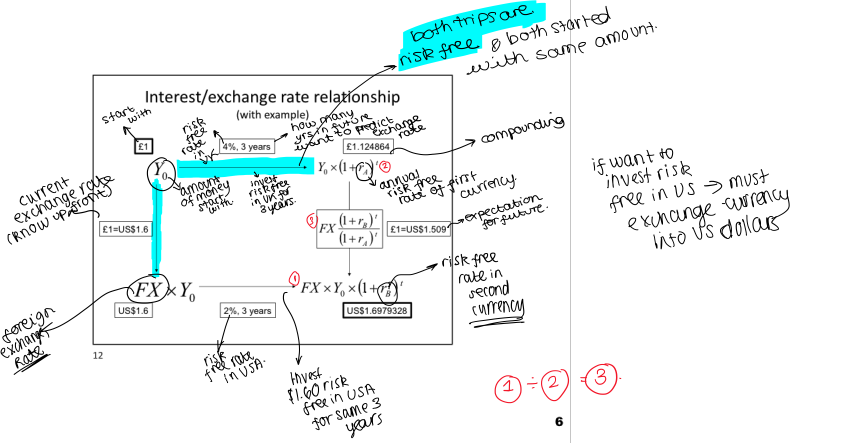 both trips are
risk free & both started
with same amount.
Interest/exchange rate relationship
(with example)
start
with
£1
risk
free
rate
in
UK
4%, 3 years
how many
yrs in future
want to predict exchange
rate
£1.124864
compounding
Y₀
Y₀ × (1 + r_A)^t ②
amount
of money
start
with
invest
risk free
in UK for
3 years.
annual
risk free
rate of first
currency.
current
exchange rate
(know upfront)
£1=US$1.6
③ FX (1 + r_B)^t / (1 + r_A)^t
£1=US$1.509
expectation
for future.
if want to
invest risk
free in US → must
exchange currency
into US dollars
FX × Y₀
① FX × Y₀ × (1 + r_B)^t
risk free
rate in
second
currency
US$1.6
2%, 3 years
US$1.6979328
foreign
exchange
rate
12
risk
free rate
in USA.
invest
$1.60 risk
free in USA
for same 3
years
① ÷ ② = ③.
6